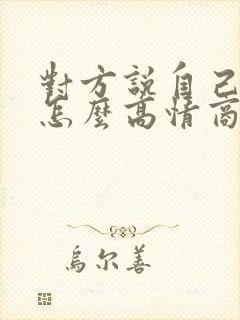 對方說自己
怎麼高情商
烏尔善